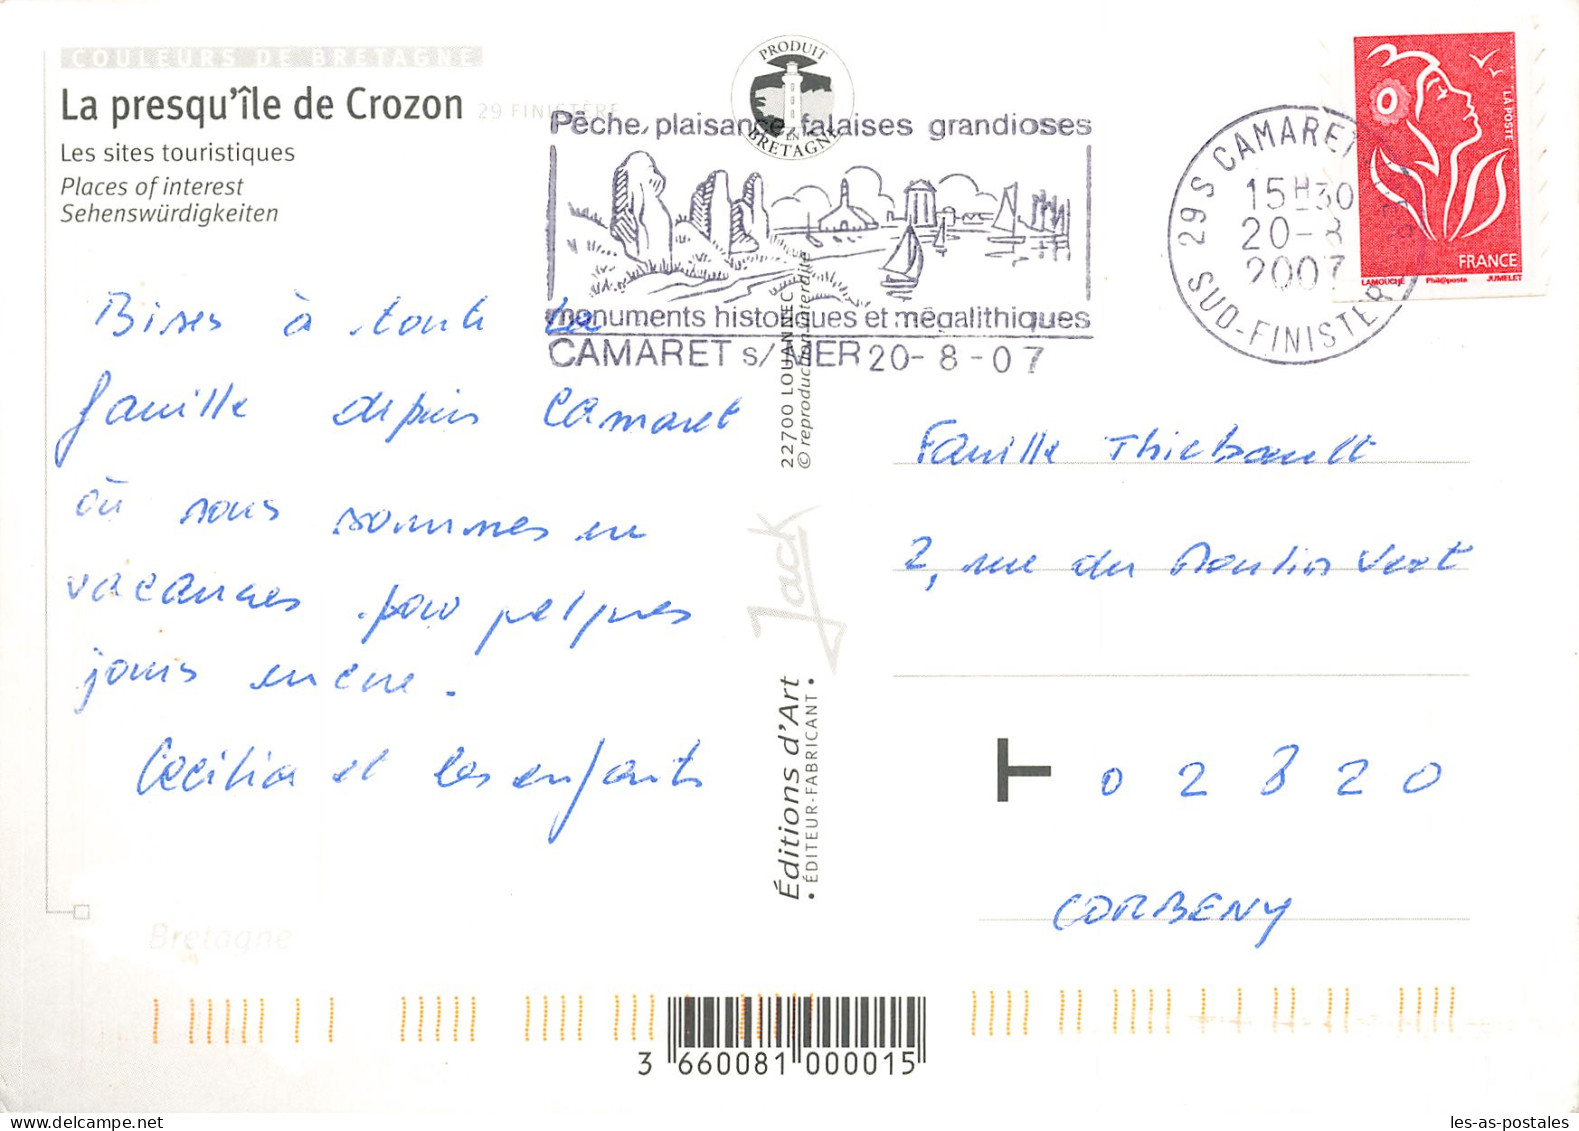 COULEURS DE BRETAGNE
La presqu'île de Crozon 29 FINISTÈRE
Les sites touristiques
Places of interest
Sehenswürdigkeiten
PRODUIT
EN
BRETAGNE
Pêche, plaisance, falaises grandioses
monuments historiques et mégalithiques
CAMARET s/ MER 20-8-07
29 S CAMARET
15H30
20-8
2007
SUD-FINISTERE
LA POSTE
FRANCE
LAMOUCHE Phil@poste JUMELET
Bises à toute la
famille depuis Camaret
où nous sommes en
vacances pour quelques
jours encore.
Cecilia et les enfants
22700 LOUANNEC
© reproduction interdite
Jack
Éditions d'Art
• ÉDITEUR-FABRICANT •
Famille Thiebault
2, rue du Moulin Vert
T 02820
CORBENY
Bretagne
3 660081 000015
les-as-postales